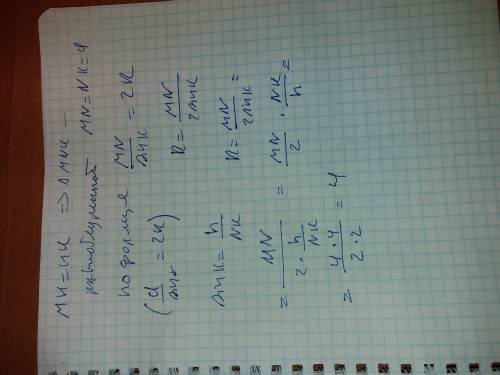 MN=NK => Δ MNK –
равнобедренный MN=NK=4
по формуле MN/sin K = 2R
(a/sin α = 2R) R = MN/2sin K
sin K = h/NK R = MN/2sin K =
= MN/(2 · h/NK) = MN/2 · NK/h =
= 4·4/2·2 = 4